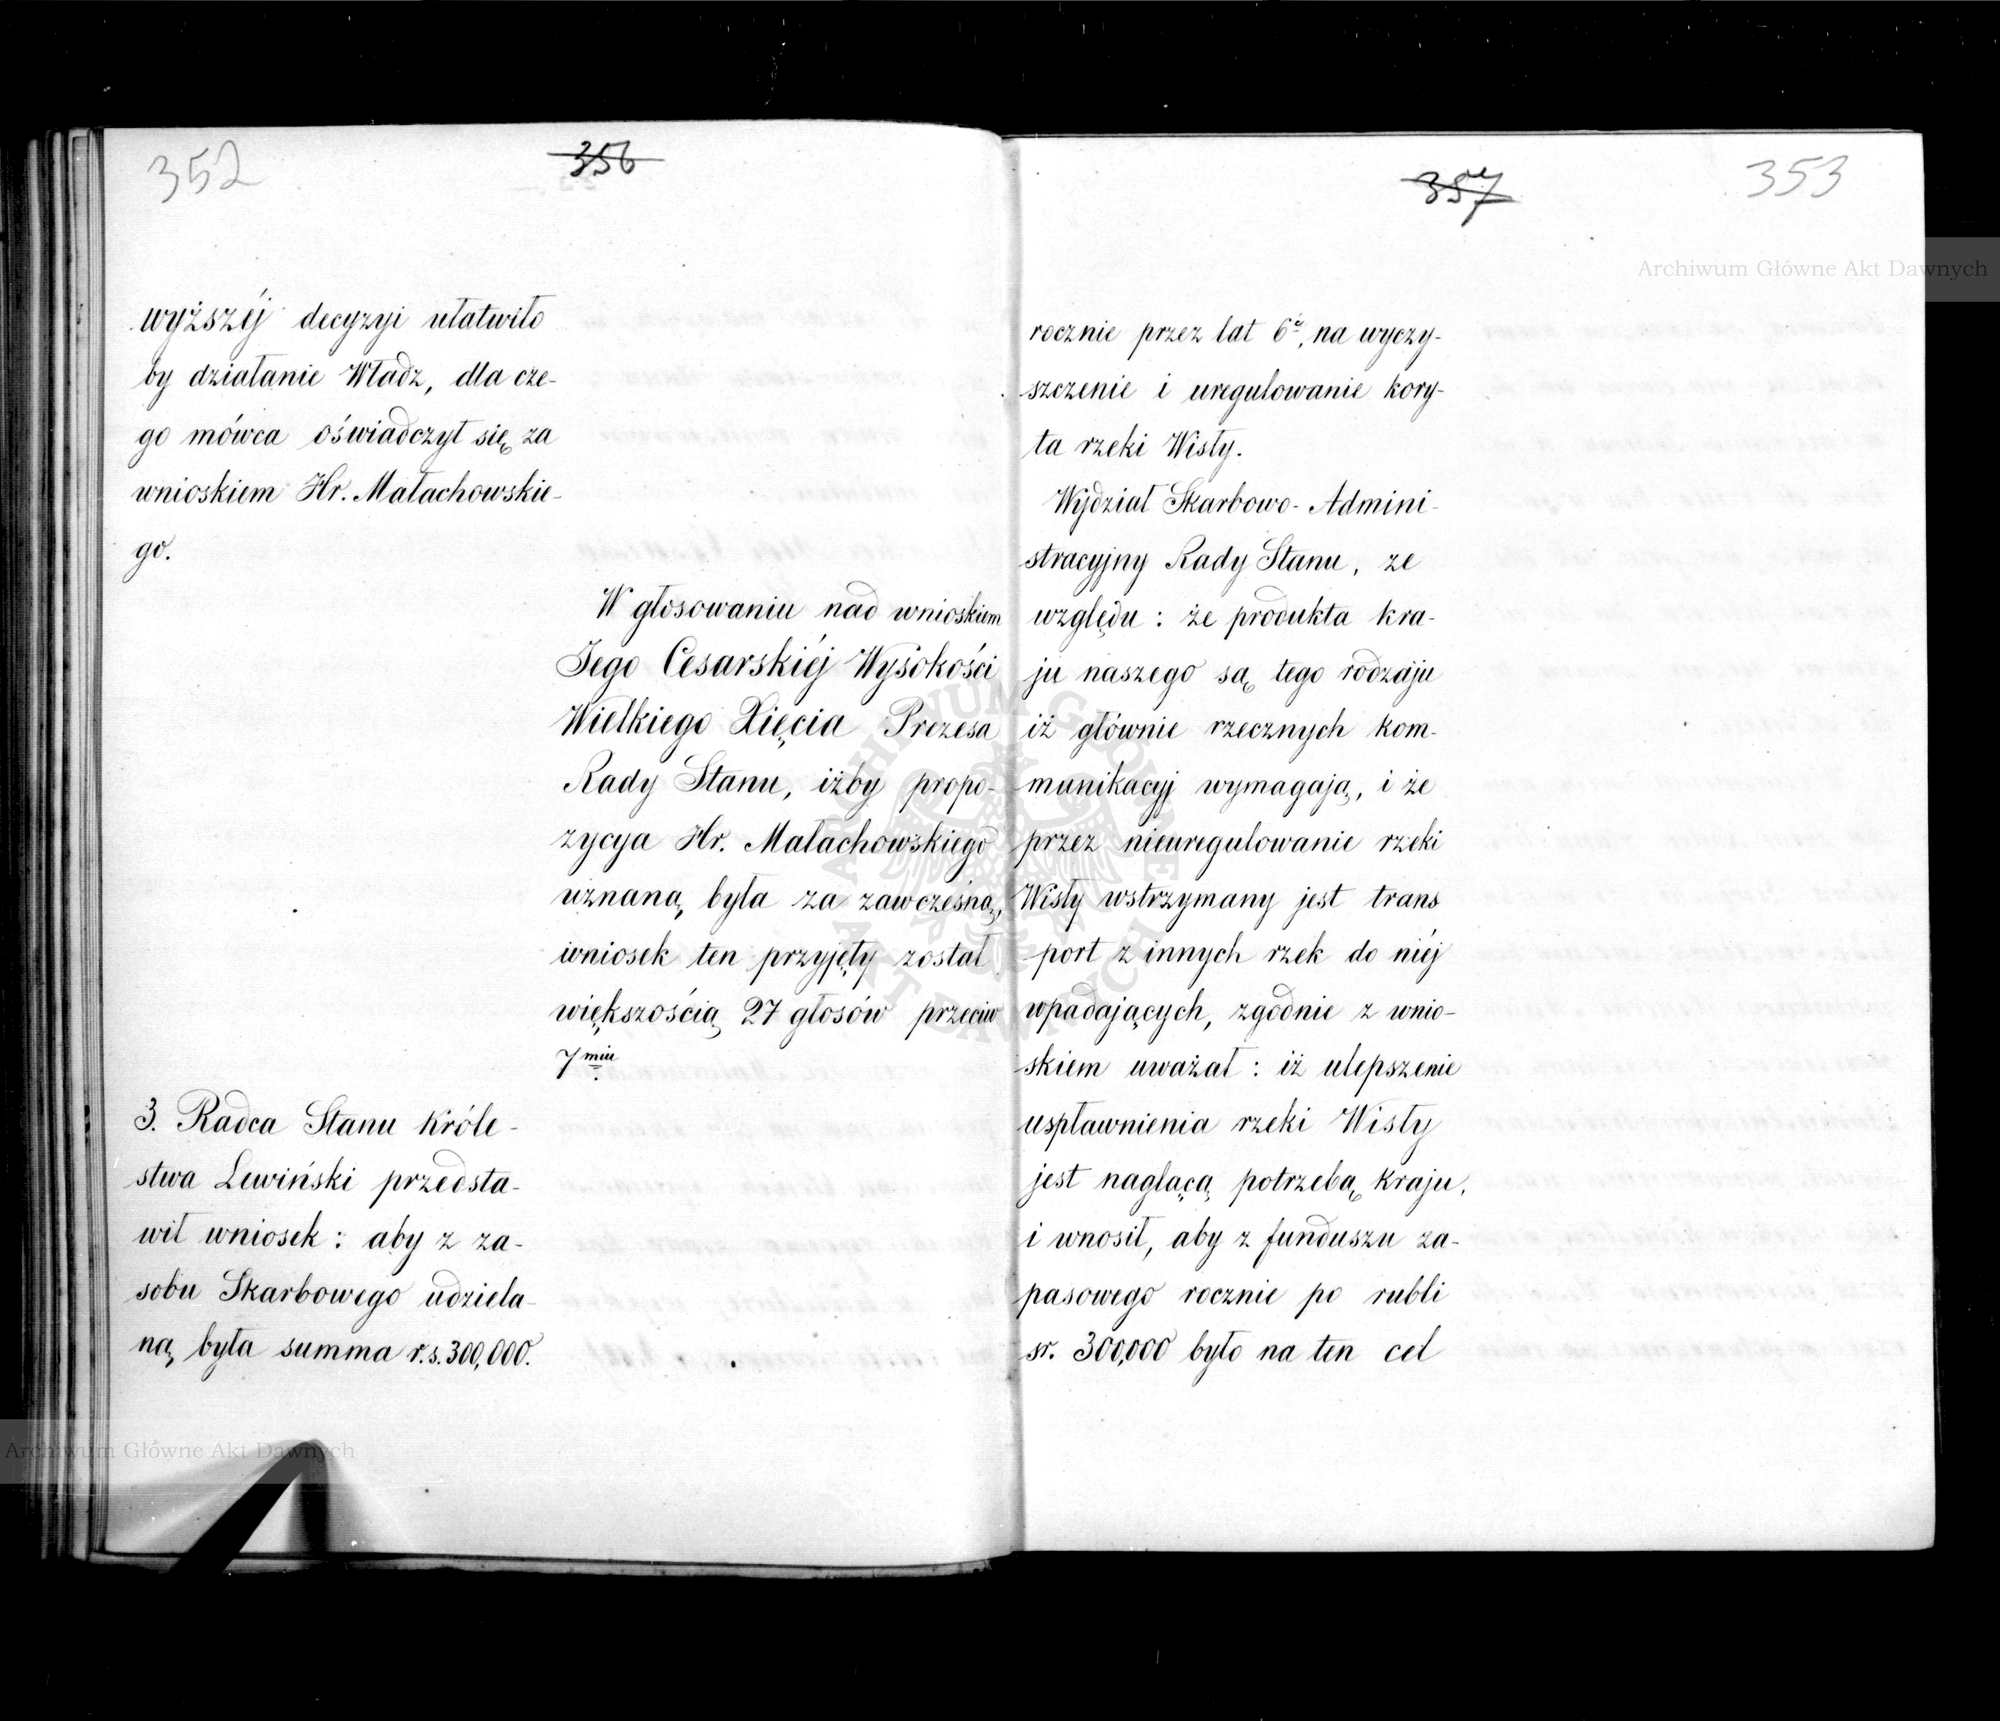 352
356
wyższéj decyzyi ułatwiło
by działanie Władz, dla cze-
go mówca oświadczył się za
wnioskiem Hr. Małachowskie-
go.
W głosowaniu nad wnioskiem
Jego Cesarskiéj Wysokości
Wielkiego Xięcia Prezesa
Rady Stanu, iżby propo-
zycya Hr. Małachowskiego
uznaną była za zawcześną,
wniosek ten przyjęty został
większością 27 głosów przeciw
7miu.
3. Radca Stanu Króle-
stwa Lewiński przedsta-
wił wniosek: aby z za-
sobu Skarbowego udziela-
ną była summa r.s. 300,000.
357
353
rocznie przez lat 6ć, na wyczy-
szczenie i uregulowanie kory-
ta rzeki Wisły.
Wydział Skarbowo-Admini-
stracyjny Rady Stanu, ze
względu: że produkta kra-
ju naszego są tego rodzaju
iż głównie rzecznych kom-
munikacyj wymagają, i że
przez nieuregulowanie rzeki
Wisły wstrzymany jest trans
port z innych rzek do niéj
wpadających, zgodnie z wnio-
skiem uważał: iż ulepszenie
uspławnienia rzeki Wisły
jest naglącą potrzebą kraju,
i wnosił, aby z funduszu za-
pasowego rocznie po rubli
sr. 300,000 było na ten cel
Archiwum Główne Akt Dawnych
Archiwum Główne Akt Dawnych
ARCHIWUM GŁÓWNE AKT DAWNYCH